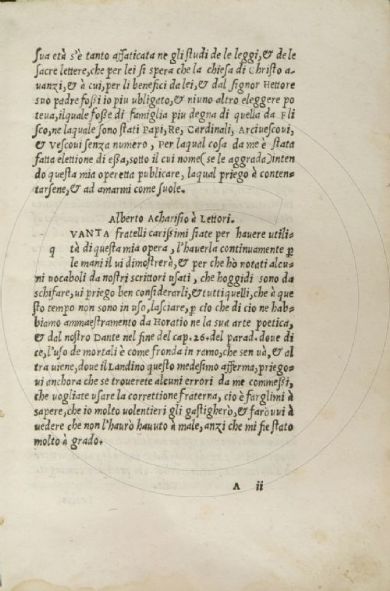 sua età s'è tanto affaticata ne gli studi de le leggi, & de le
sacre lettere, che per lei si spera che la chiesa di Christo a-
uanzi, & à cui, per li benefici da lei, & dal signor Hettore
suo padre fossi io piu ubligato, & niuno altro eleggere po
teua, ilquale foße di famiglia piu degna di quella da Fli
sco, ne laquale sono stati Papi, Re, Cardinali, Arciuescoui,
& Vescoui senza numero, Per laqual cosa da me è stata
fatta elettione di eßa, sotto il cui nome (se le aggrada) inten
do questa mia operetta publicare, laqual priego à conten-
tarsene, & ad amarmi come suole.
Alberto Acharisio à Lettori.
VANTA fratelli carissimi siate per hauere utili-
q tà di questa mia opera, l'hauerla continuamente p
le mani il ui dimostrerà, & per che hò notati alcu
ni uocaboli da nostri scrittori usati, che hoggidi sono da
schifare, ui priego ben considerarli, & tutti quelli, che à que
sto tempo non sono in uso, lasciare, p cio che di cio ne hab-
biamo ammaestramento da Horatio ne la sua arte poetica,
& dal nostro Dante nel fine del cap. 26. del parad. doue di
ce, l'uso de mortali è come fronda in ramo, che sen uà, & al
tra uiene, doue il Landino questo medesimo afferma, priego-
ui anchora che se trouerete alcuni errori da me commessi,
che uogliate usare la correttione fraterna, cio è farglimi à
sapere, che io molto uolentieri gli gastigherò, & farouui à
uedere che non l'haurò hauuto à male, anzi che mi fie stato
molto à grado.
A ii